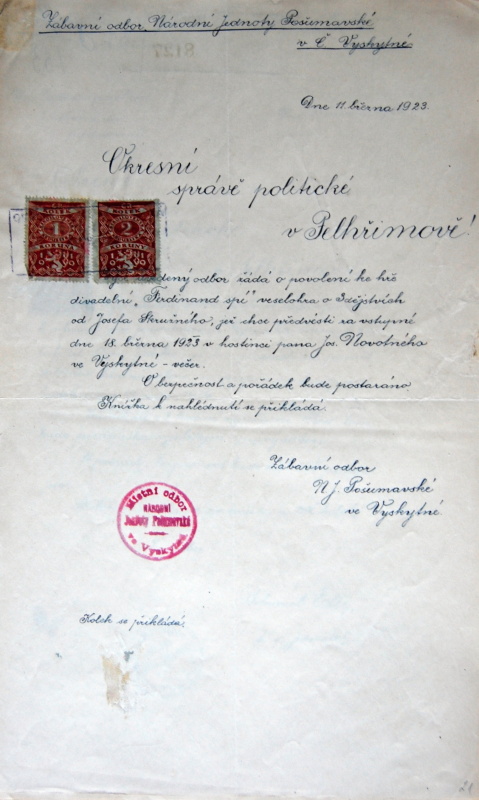 Zábavní odbor Národní Jednoty Pošumavské
v Č. Vyskytné.
8127
Dne 11. března 1923.
Okresní
správě politické
v Pelhřimově!
KOLEK
1
KORUNA
KOLEK
2
KORUNY
odbor žádá o povolení ke hře
divadelní „Ferdinand spí" veselohra o 3 dějstvích
od Josefa Skružného, jež chce předvésti za vstupné
dne 18. března 1923 v hostinci pana Jos. Novotného
ve Vyskytné - večer.
O bezpečnost a pořádek bude postaráno.
Knížka k nahlédnutí se přikládá.
Zábavní odbor
N. J. Pošumavské
ve Vyskytné.
Místní odbor
NÁRODNÍ
Jednoty Pošumavské
ve Vyskytné
Kolek se přikládá.